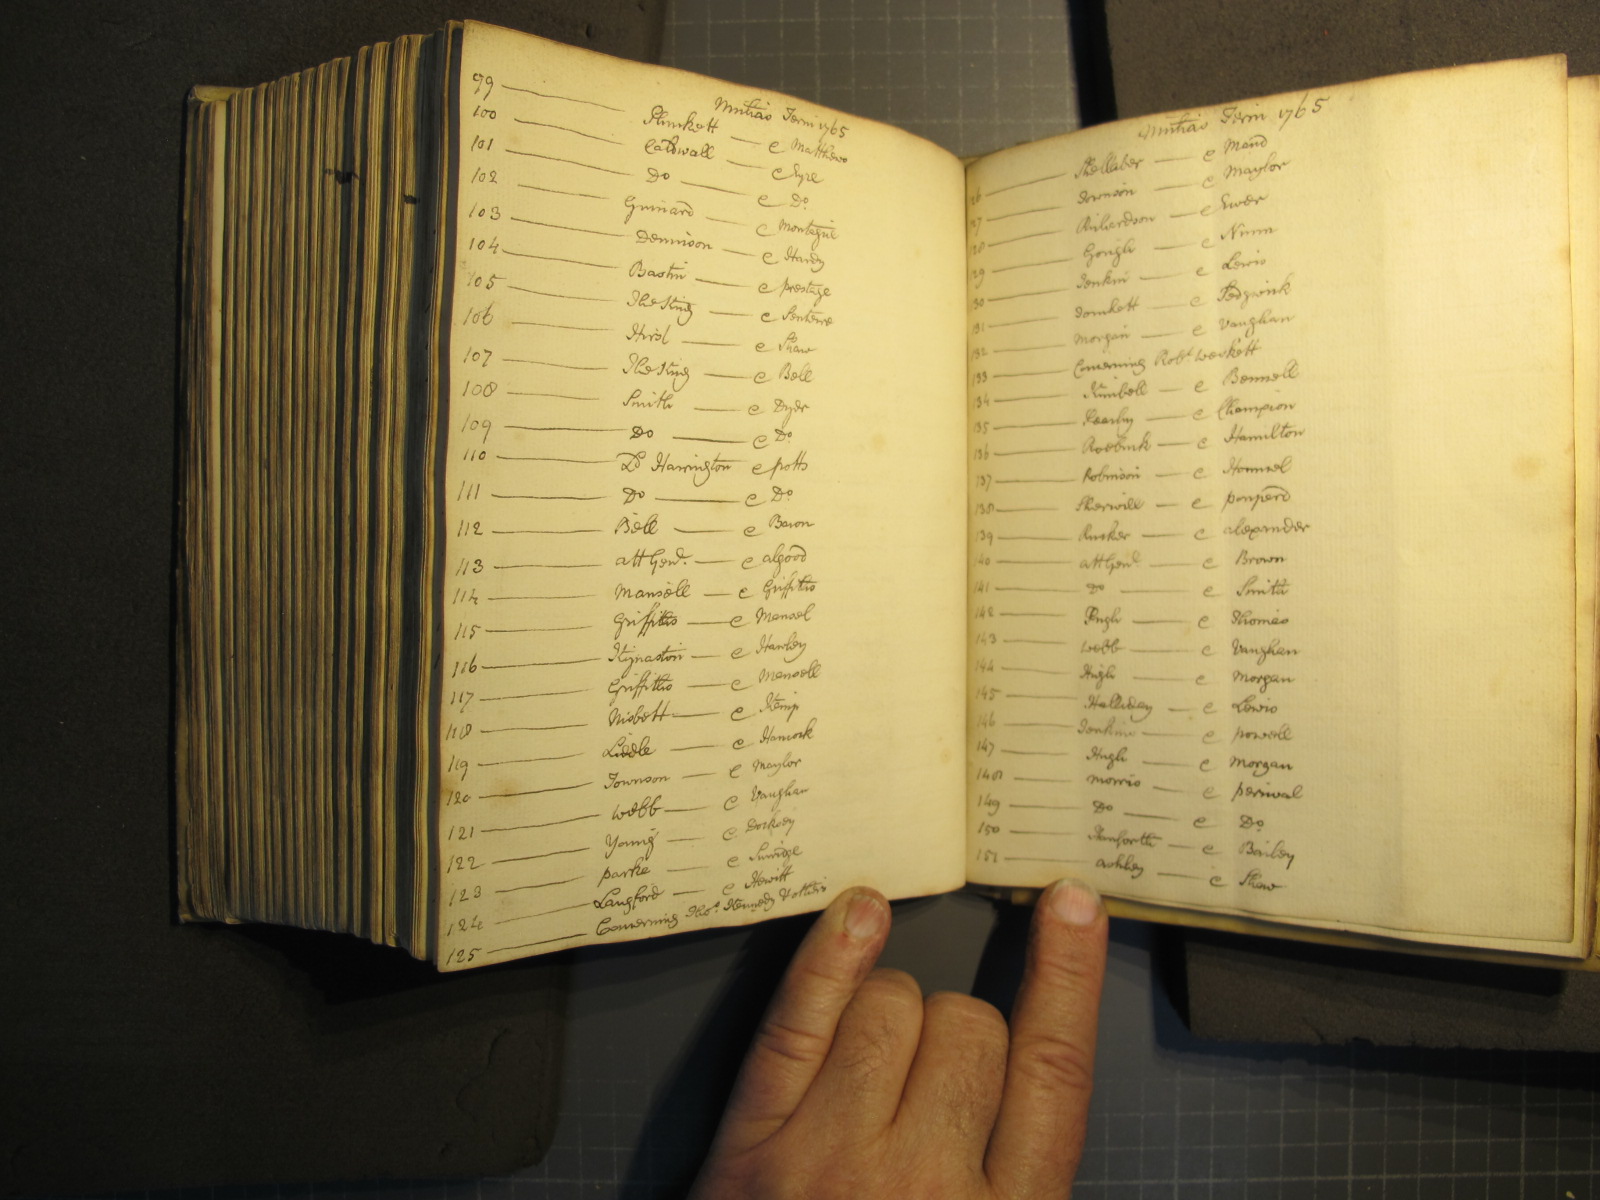 Michas Term 1765
99 Plunkett c Matthews
100 Caldwall c Eyre
101 Do c Do
102 Guinard c Montague
103 Dennison c Hardy
104 Bastin c prestage
105 The King c
106 Hirst c Shaw
107 The King c Bell
108 Smith c Dyer
109 Do c Do
110 Ld Harrington c potts
111 Do c Do
112 Bell c Bacon
113 att Genl. c algood
114 Mansell c Griffiths
115 Griffiths c Mansel
116 Kynaston c Hawley
117 Griffiths c Mansell
118 Nisbett c Kemp
119 Liddle c Hancock
120 Townson c Maylor
121 Webb c Vaughan
122 Young c
123 parke c Surridge
124 Langford c Hewitt
125 Concerning Thos. Kennedy & others
Michas Term 1765
26 Shellaber c Mand
27 Townson c Maylor
128 Richardson c Ewer
129 Gough c Nunn
130 Jenkin c Lewis
131 c Sedgwick
132 Morgan c Vaughan
133 Concerning Robt Weskett
134 Kimbell c Bennell
135 Fearby c Champion
136 Roebuck c Hamilton
137 Robinson c
138 Sherwill c
139 Rucker c alexander
140 att Genl c Brown
141 Do c Smith
142 Pugh c Thomas
143 Webb c Vaughan
144 Hugh c Morgan
145 Halliday c Lewis
146 Jenkins c powell
147 Hugh c Morgan
148 Morris c percival
149 Do c Do
150 c Bailey
151 ashley c Shaw